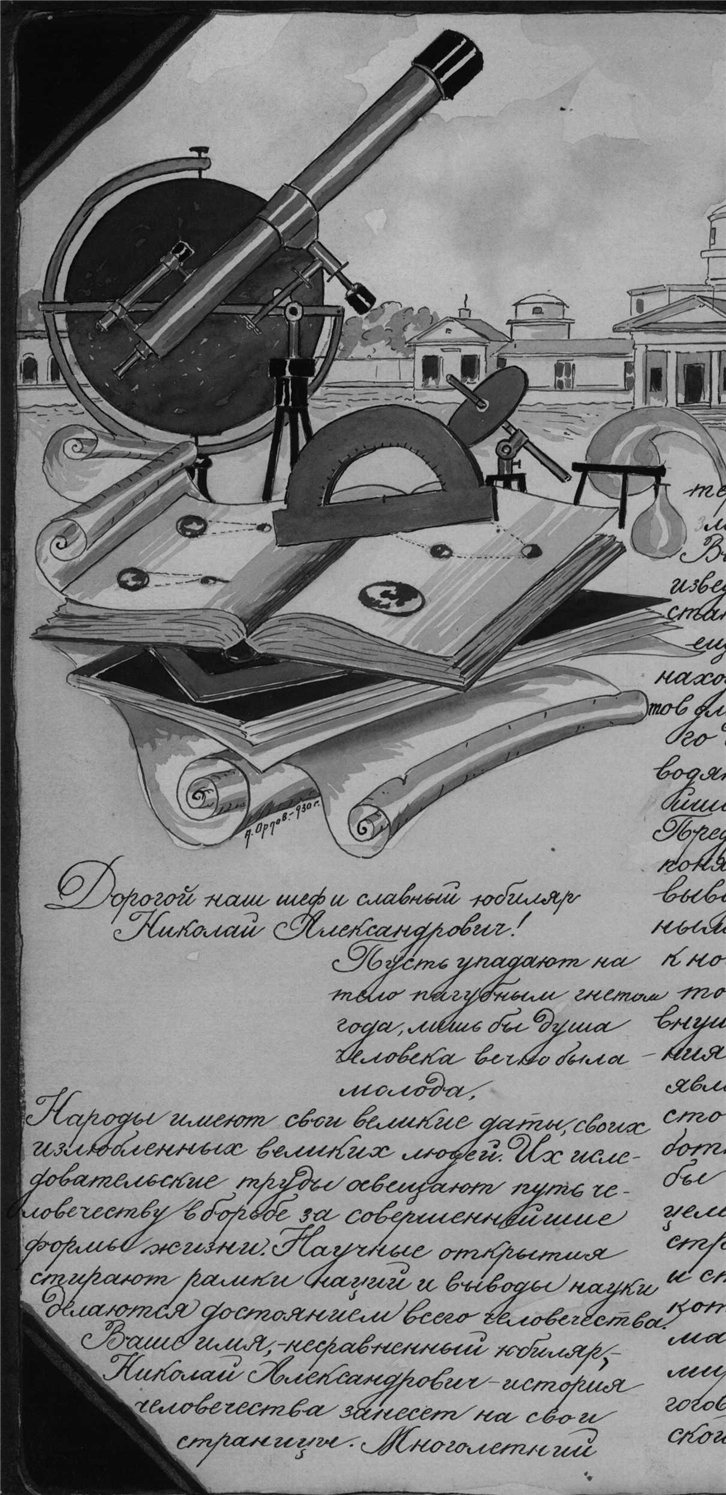 А. Орлов.-930 г.
Дорогой наш шеф и славный юбиляр
Николай Александрович!
Пусть упадают на
тело пагубным гнетом
года, лишь бы душа
человека вечно была
молода,
Народы имеют свои великие даты, своих
излюбленных великих людей. Их иссле-
довательские труды освещают путь че-
ловечеству в борьбе за совершеннейшие
формы жизни. Научные открытия
стирают рамки наций и выводы науки
делаются достоянием всего человечества.
Ваше имя,-несравненный юбиляр,-
Николай Александрович-история
человечества занесет на свои
страницы. Многолетний
те
Ва
изве
стан
наход
тов дл
го
водя
Пред
поня
выво
ным
к но
то
внуш
ния
явл
сто
бот
бы
цел
стр
и сп
кот
ма
ми
гогов
ског